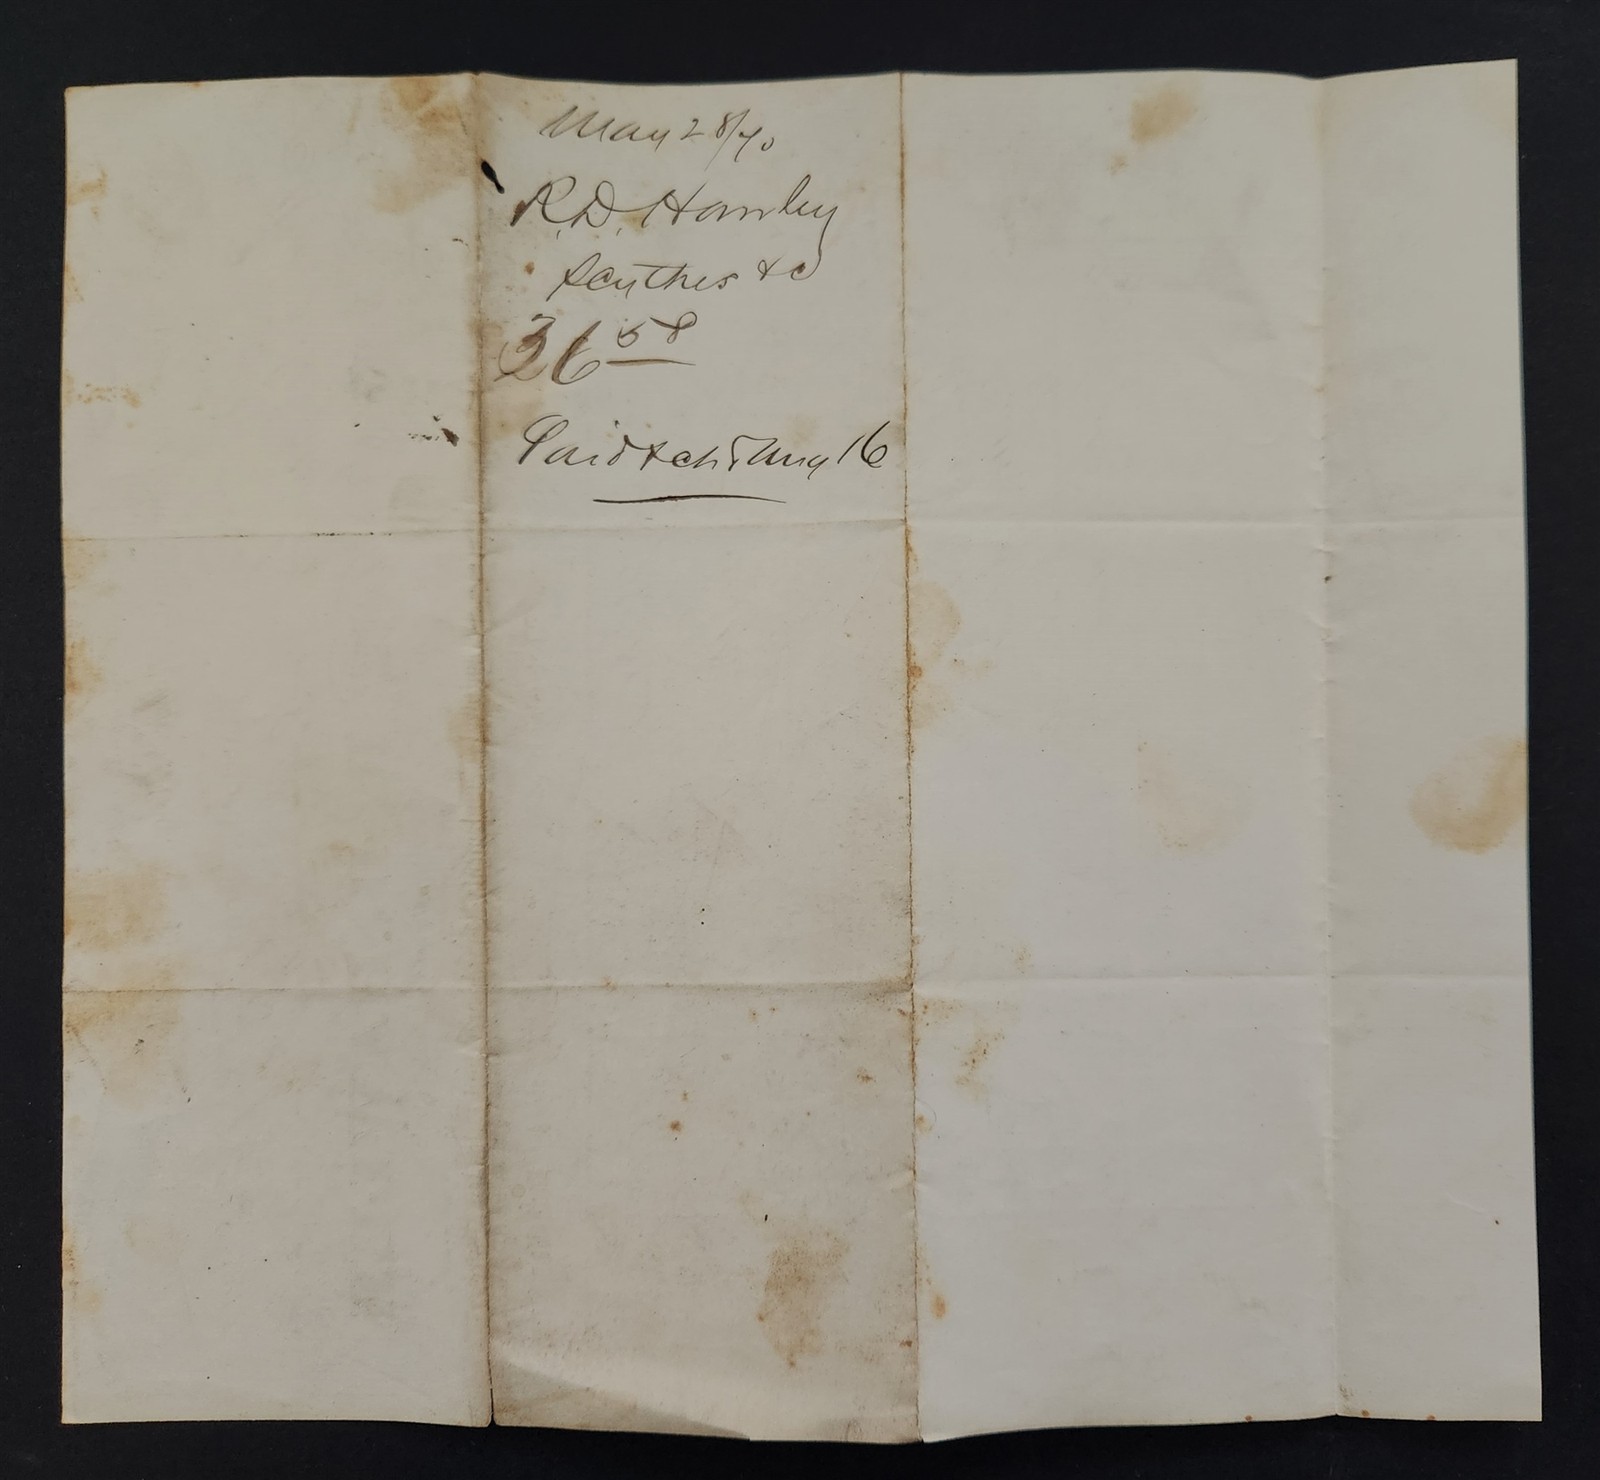 May 28/70
R.D. Hawley
Scythes &c
36 58
Paid Aug 16